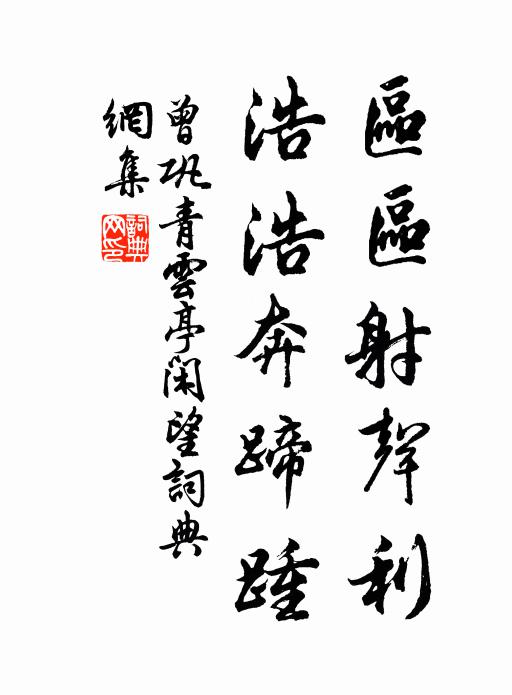 區區射聲利
浩浩奔蹄踵
曾巩青雲亭閑望詞典
網集
詞典网印